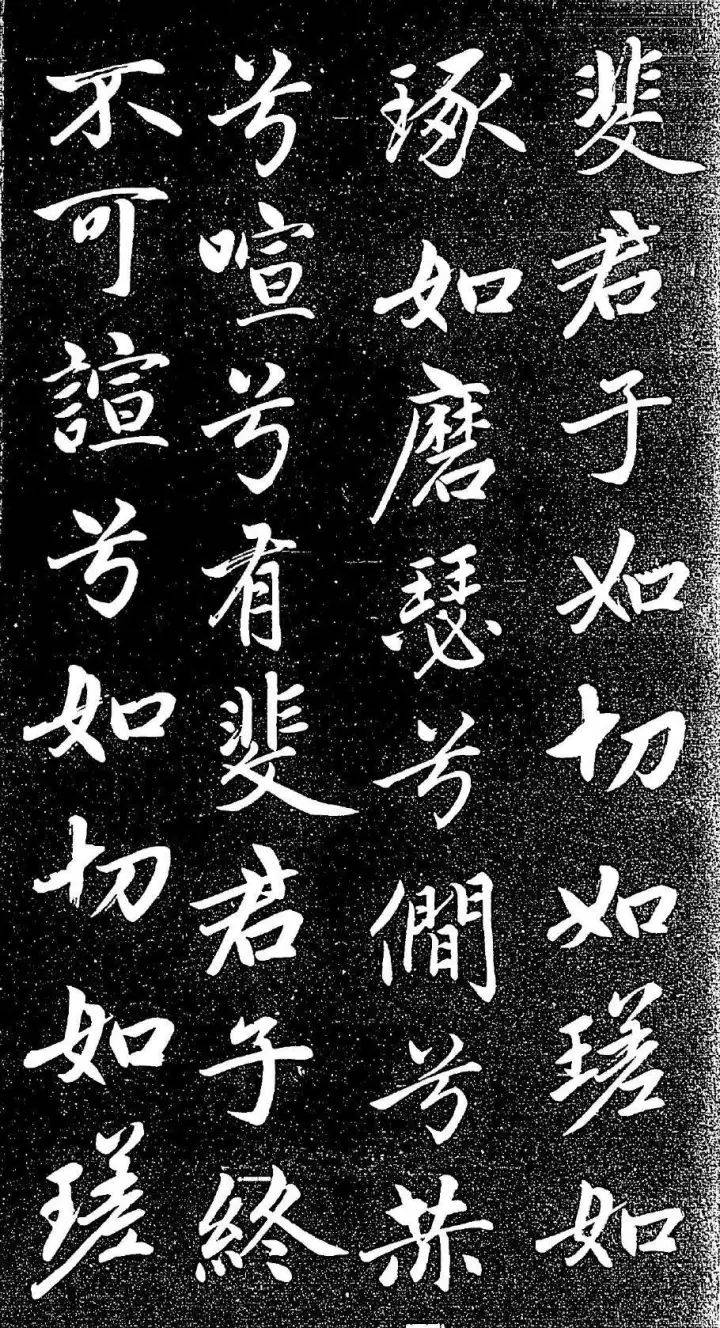 斐君子如切如瑳如
琢如磨瑟兮僩兮赫
兮喧兮有斐君子終
不可諠兮如切如瑳